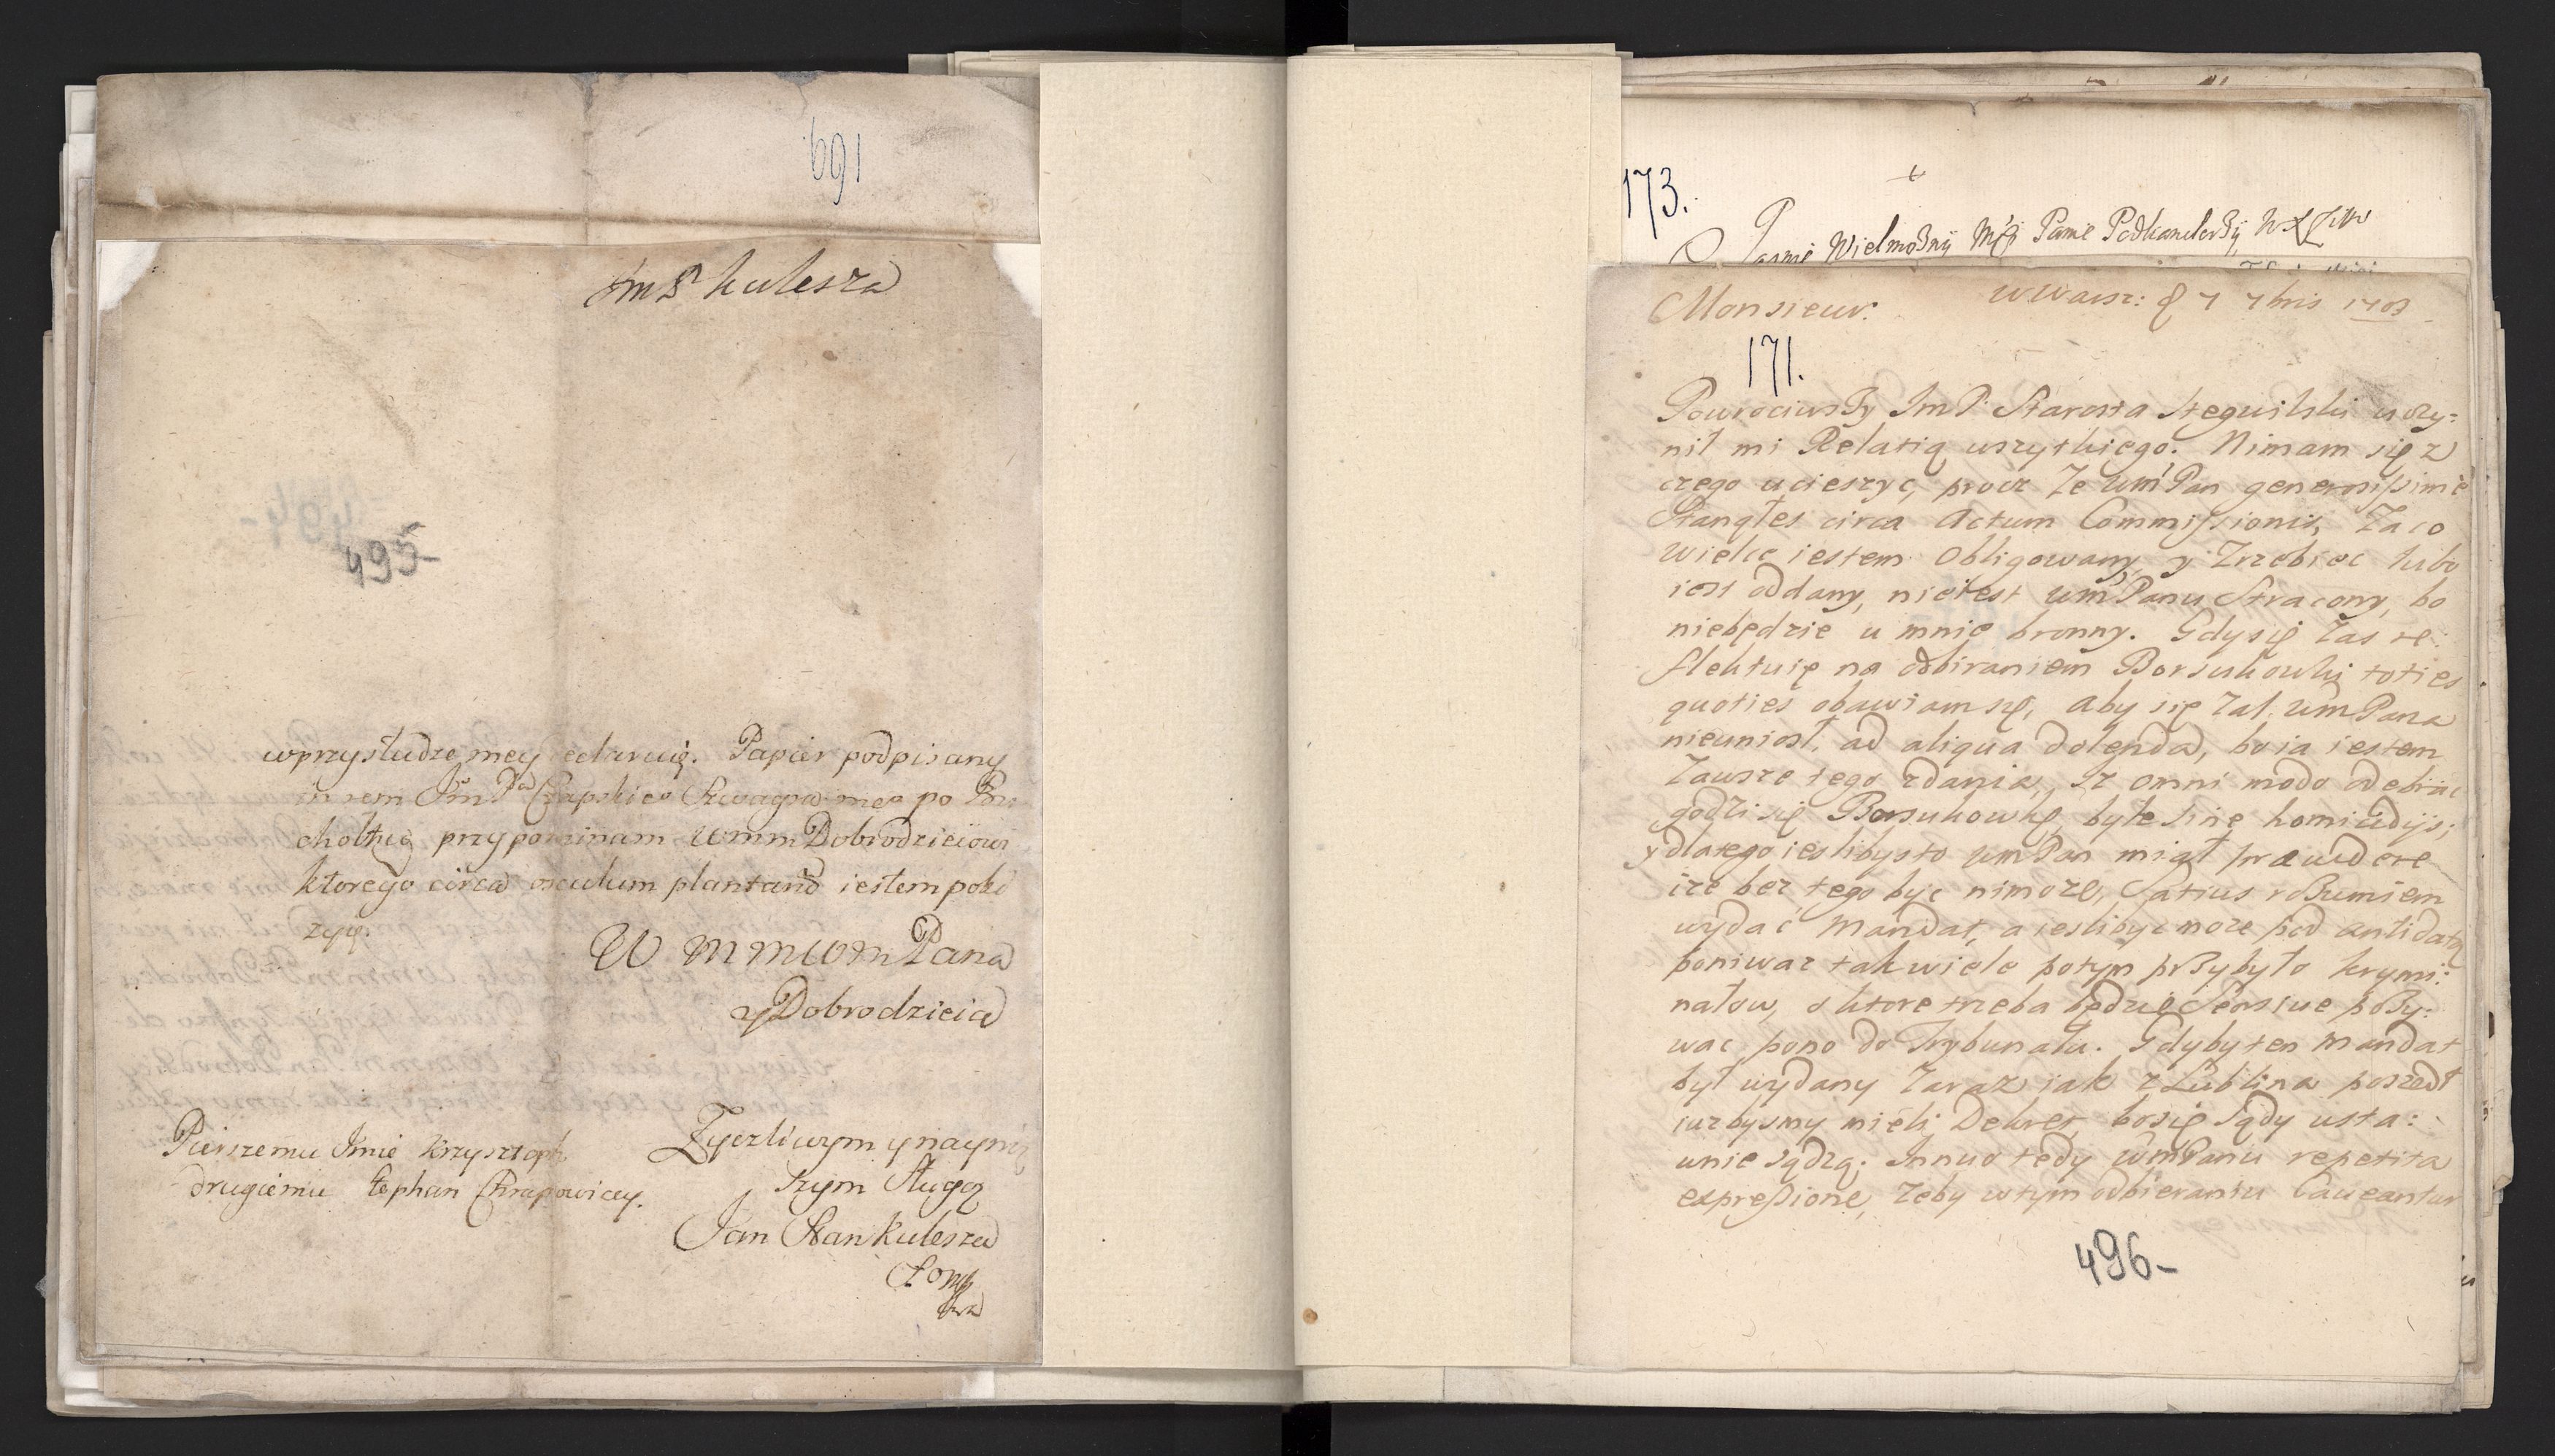 169
Im P Kulesza
494-
495-
wprzysłudze mey eclaruię. Papier podpisany
in rem Im Pa Czapskieo Szwagra meo po
choltuą przypominam Umm Dobrodzieiowi
ktorego circa osculum plantand iestem poki
zyię.
W M M W M Pana
y Dobrodzieia
Pierszemu Imie Krzysztoph
drugiemu Stephan Chrapowiccy.
Zyczliwym y nayniz
szym Sługą
Jan Stan Kulesza
173.
Jasnie Wielmozny Mći Panie Podkanclerzy
Monsieur.
w Warsz: d 7 7bris 1703
171.
Powrociwszy Im P. Starosta Stegwilski uczy:
nił mi Relatią wszytkiego. Nimam się z
czego ucieszyc, procz Ze WmPan generosissime
Stanąłes circa Actum Commissionis, Za co
wielce iestem Obligowany, y Zrzebiec lubo
iest oddany, nietest WmPanu Stracony, bo
niebędzie u mnie bronny. Gdy się Zas re:
flektuię na odbiraniem Borsukowki toties
quoties obawiam się, aby się Zal. WmPana
nieuniosł, ad aliqua dolenda, bo ia iestem
Zawsze tego zdania, Iz omni modo odebrac
godzi się Borsukowkę, byłe sine homicidijs;
y dlatego ieslibysto WmPan miał prawd ere
ize bez tego byc nimoze, Satius rozumiem
wydać Mandat, a iesli byc moze pod antidatą
poniwaz tak wiele potym przybyło krymi:
nałow, o ktore trzeba będzie Seorsiue pozy:
wac pono do Trybunału. Gdyby ten Mandat
był wydany Zaraz iak z Lublina poszedł
iuzbysmy mieli Dekret, bosię Sądy usta:
unie sądzą. Innuo tedy WmPanu repetita
expressione, Zeby wtym odbieraniu Caueantur
496-